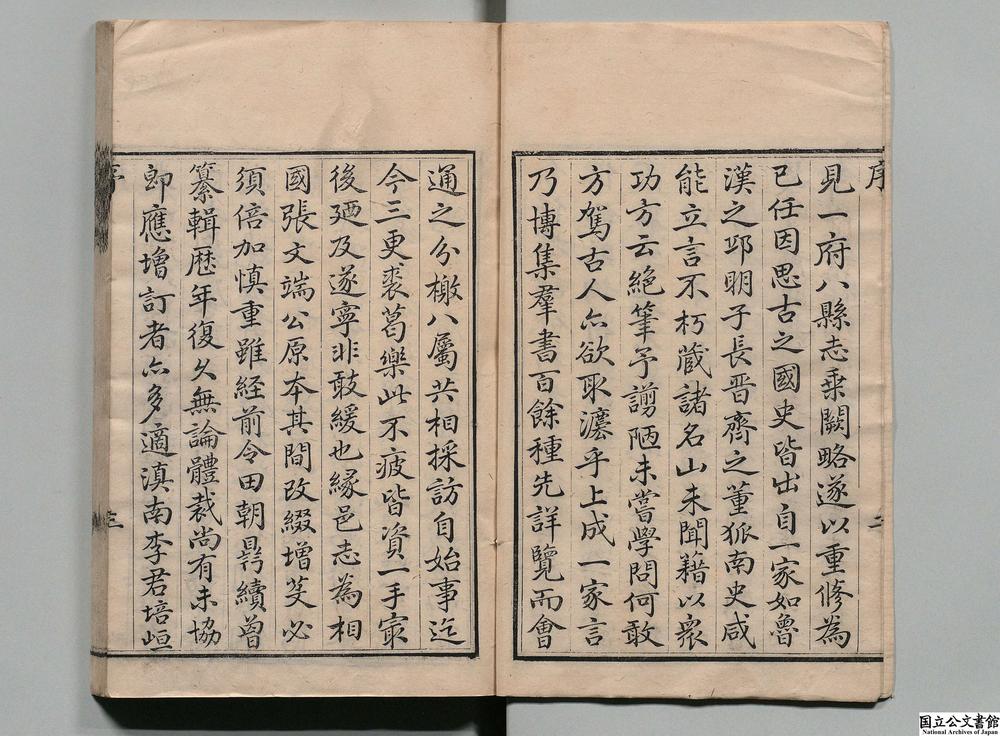 序
二
見一府八縣志乗闕略遂以重修為
已任因思古之國史皆出自一家如魯
漢之邱明子長晋齊之董狐南史咸
能立言不朽蔵諸名山未聞籍以衆
功方云絶筆予謭陋未嘗學問何敢
方駕古人亦欲取瀍乎上成一家言
乃博集羣書百餘種先詳覽而會
通之分檄八屬共相採訪自始事迄
今三更裘葛樂此不疲皆資一手㝡
後廼及遂寧非敢緩也縁邑志為相
國張文端公原本其間改綴增芟必
須倍加慎重雖経前令田朝鼎續曾
纂輯歴年復久無論體裁尚有未協
即應增訂者亦多適滇南李君培峘
序
三
国立公文書館
National Archives of Japan